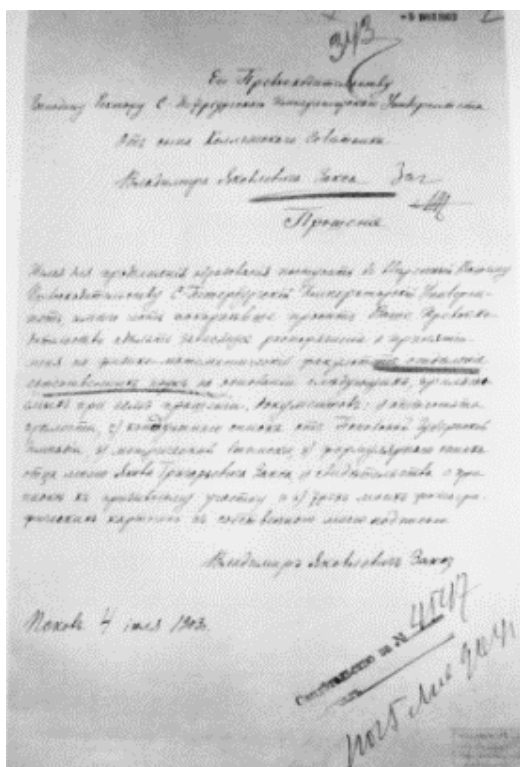 343
Его Превосходительству
Господину Ректору С.-Петербургского Императорского Университета
Отъ сына Коллежского Советника
Владимира Яковлевича Закса
Прошение
Желая для продолжения образования поступить въ вверенный Вашему
Превосходительству С.-Петербургский Императорский Универси-
тетъ, имею честь покорнейше просить Ваше Превосхо-
дительство сделать зависящее распоряжение о принятии
меня на физико-математический факультетъ отделение
естественныхъ наукъ на основании следующихъ, прилага-
емыхъ при семъ прошении, документовъ: 1) аттестата
зрелости, 2) кондуитного списка отъ Псковской Губернской
Гимназии, 3) метрической выписки, 4) формулярного списка
отца моего Якова Григорьевича Закса, 5) свидетельства о при-
писке къ призывному участку и 6) трехъ моихъ фотогра-
фическихъ карточекъ съ собственного моею подписью.
Владимиръ Яковлевичъ Заксъ
Псковъ 4 июля 1903.
Свидетельство за № 4547